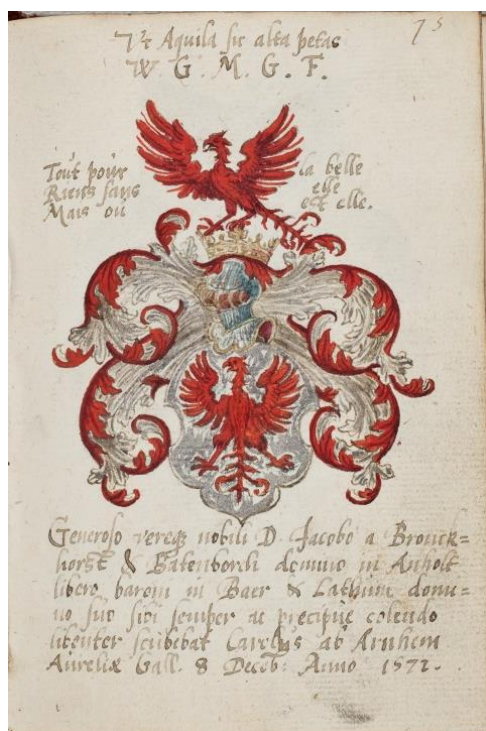 75
Vt Aquila sic alta petas
W. G. M. G. F.
Tout pour la belle
Riens sans elle
Mais ou est elle.
Generoso vereq3 nobili D. Jacobo a Bronck=
horst & Batenborch domino in Anholt
libero baroni in Baer & Lathum domi=
no suo sibi semper ac precipue colendo
libenter scribebat Carolus ab Arnhem
Aureliæ Gall. 8 Decēb: Anno 1572.